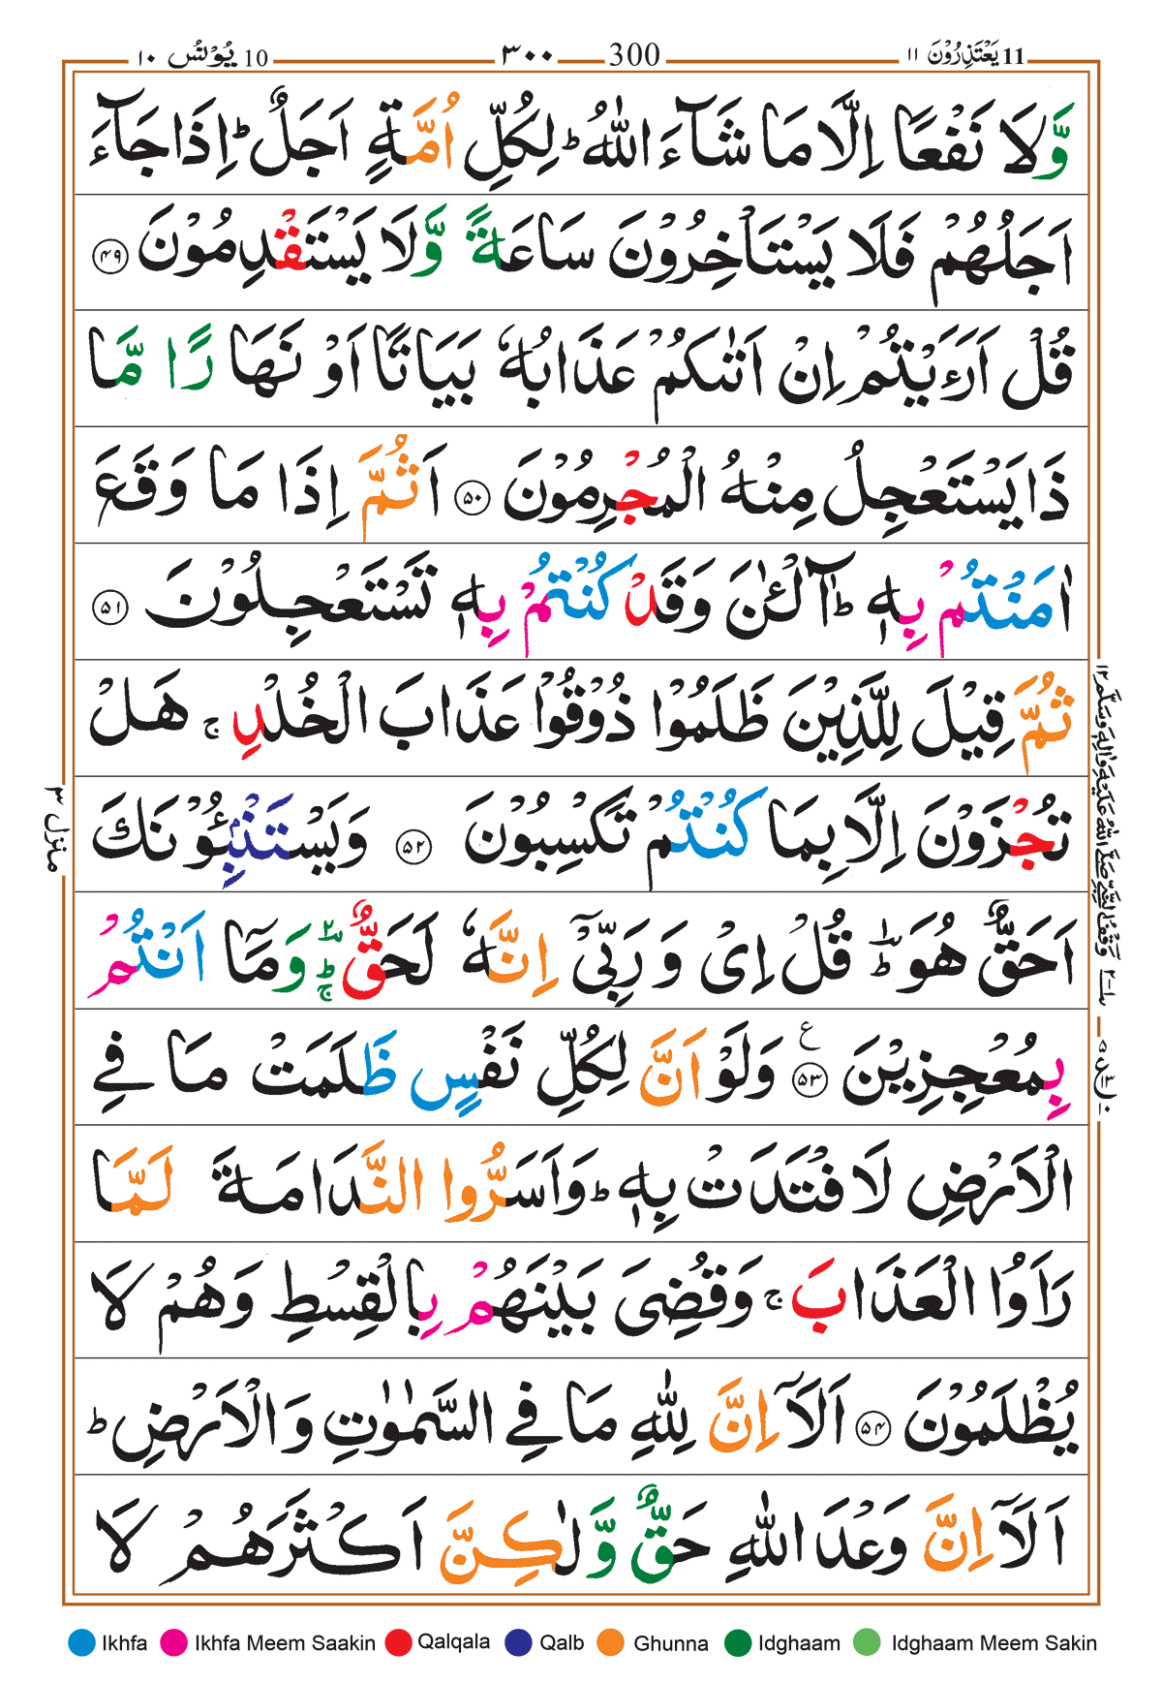 11 يَعْتَذِرُوْنَ ١١
300 ٣٠٠
10 يُوْنُس ١٠
وَّلَا نَفْعًا اِلَّا مَا شَآءَ اللّٰهُ ؕ لِكُلِّ اُمَّةٍ اَجَلٌ ؕ اِذَا جَآءَ
اَجَلُهُمْ فَلَا يَسْتَاْخِرُوْنَ سَاعَةً وَّلَا يَسْتَقْدِمُوْنَ ۴۹
قُلْ اَرَءَيْتُمْ اِنْ اَتٰىكُمْ عَذَابُهٗ بَيَاتًا اَوْ نَهَارًا مَّا
ذَا يَسْتَعْجِلُ مِنْهُ الْمُجْرِمُوْنَ ۵۰ اَثُمَّ اِذَا مَا وَقَعَ
اٰمَنْتُمْ بِهٖ ؕ آٰلْـٰٔنَ وَقَدْ كُنْتُمْ بِهٖ تَسْتَعْجِلُوْنَ ۵۱
ثُمَّ قِيْلَ لِلَّذِيْنَ ظَلَمُوْا ذُوْقُوْا عَذَابَ الْخُلْدِ ۚ هَلْ
تُجْزَوْنَ اِلَّا بِمَا كُنْتُمْ تَكْسِبُوْنَ ۵۲ وَيَسْتَنْۢبِـُٔوْنَكَ
اَحَقٌّ هُوَ ؕ قُلْ اِیْ وَ رَبِّیْۤ اِنَّهٗ لَحَقٌّ ؕۚ وَمَاۤ اَنْتُمْ
بِمُعْجِزِيْنَ ۵۳ ع وَلَوْ اَنَّ لِكُلِّ نَفْسٍ ظَلَمَتْ مَا فِی
الْاَرْضِ لَافْتَدَتْ بِهٖ ؕ وَاَسَرُّوا النَّدَامَةَ لَمَّا
رَاَوُا الْعَذَابَ ۚ وَقُضِیَ بَيْنَهُمْ بِالْقِسْطِ وَهُمْ لَا
يُظْلَمُوْنَ ۵۴ اَلَاۤ اِنَّ لِلّٰهِ مَا فِی السَّمٰوٰتِ وَالْاَرْضِ ؕ
اَلَاۤ اِنَّ وَعْدَ اللّٰهِ حَقٌّ وَّلٰكِنَّ اَكْثَرَهُمْ لَا
منزل ۳
Ikhfa Ikhfa Meem Saakin Qalqala Qalb Ghunna Idghaam Idghaam Meem Sakin